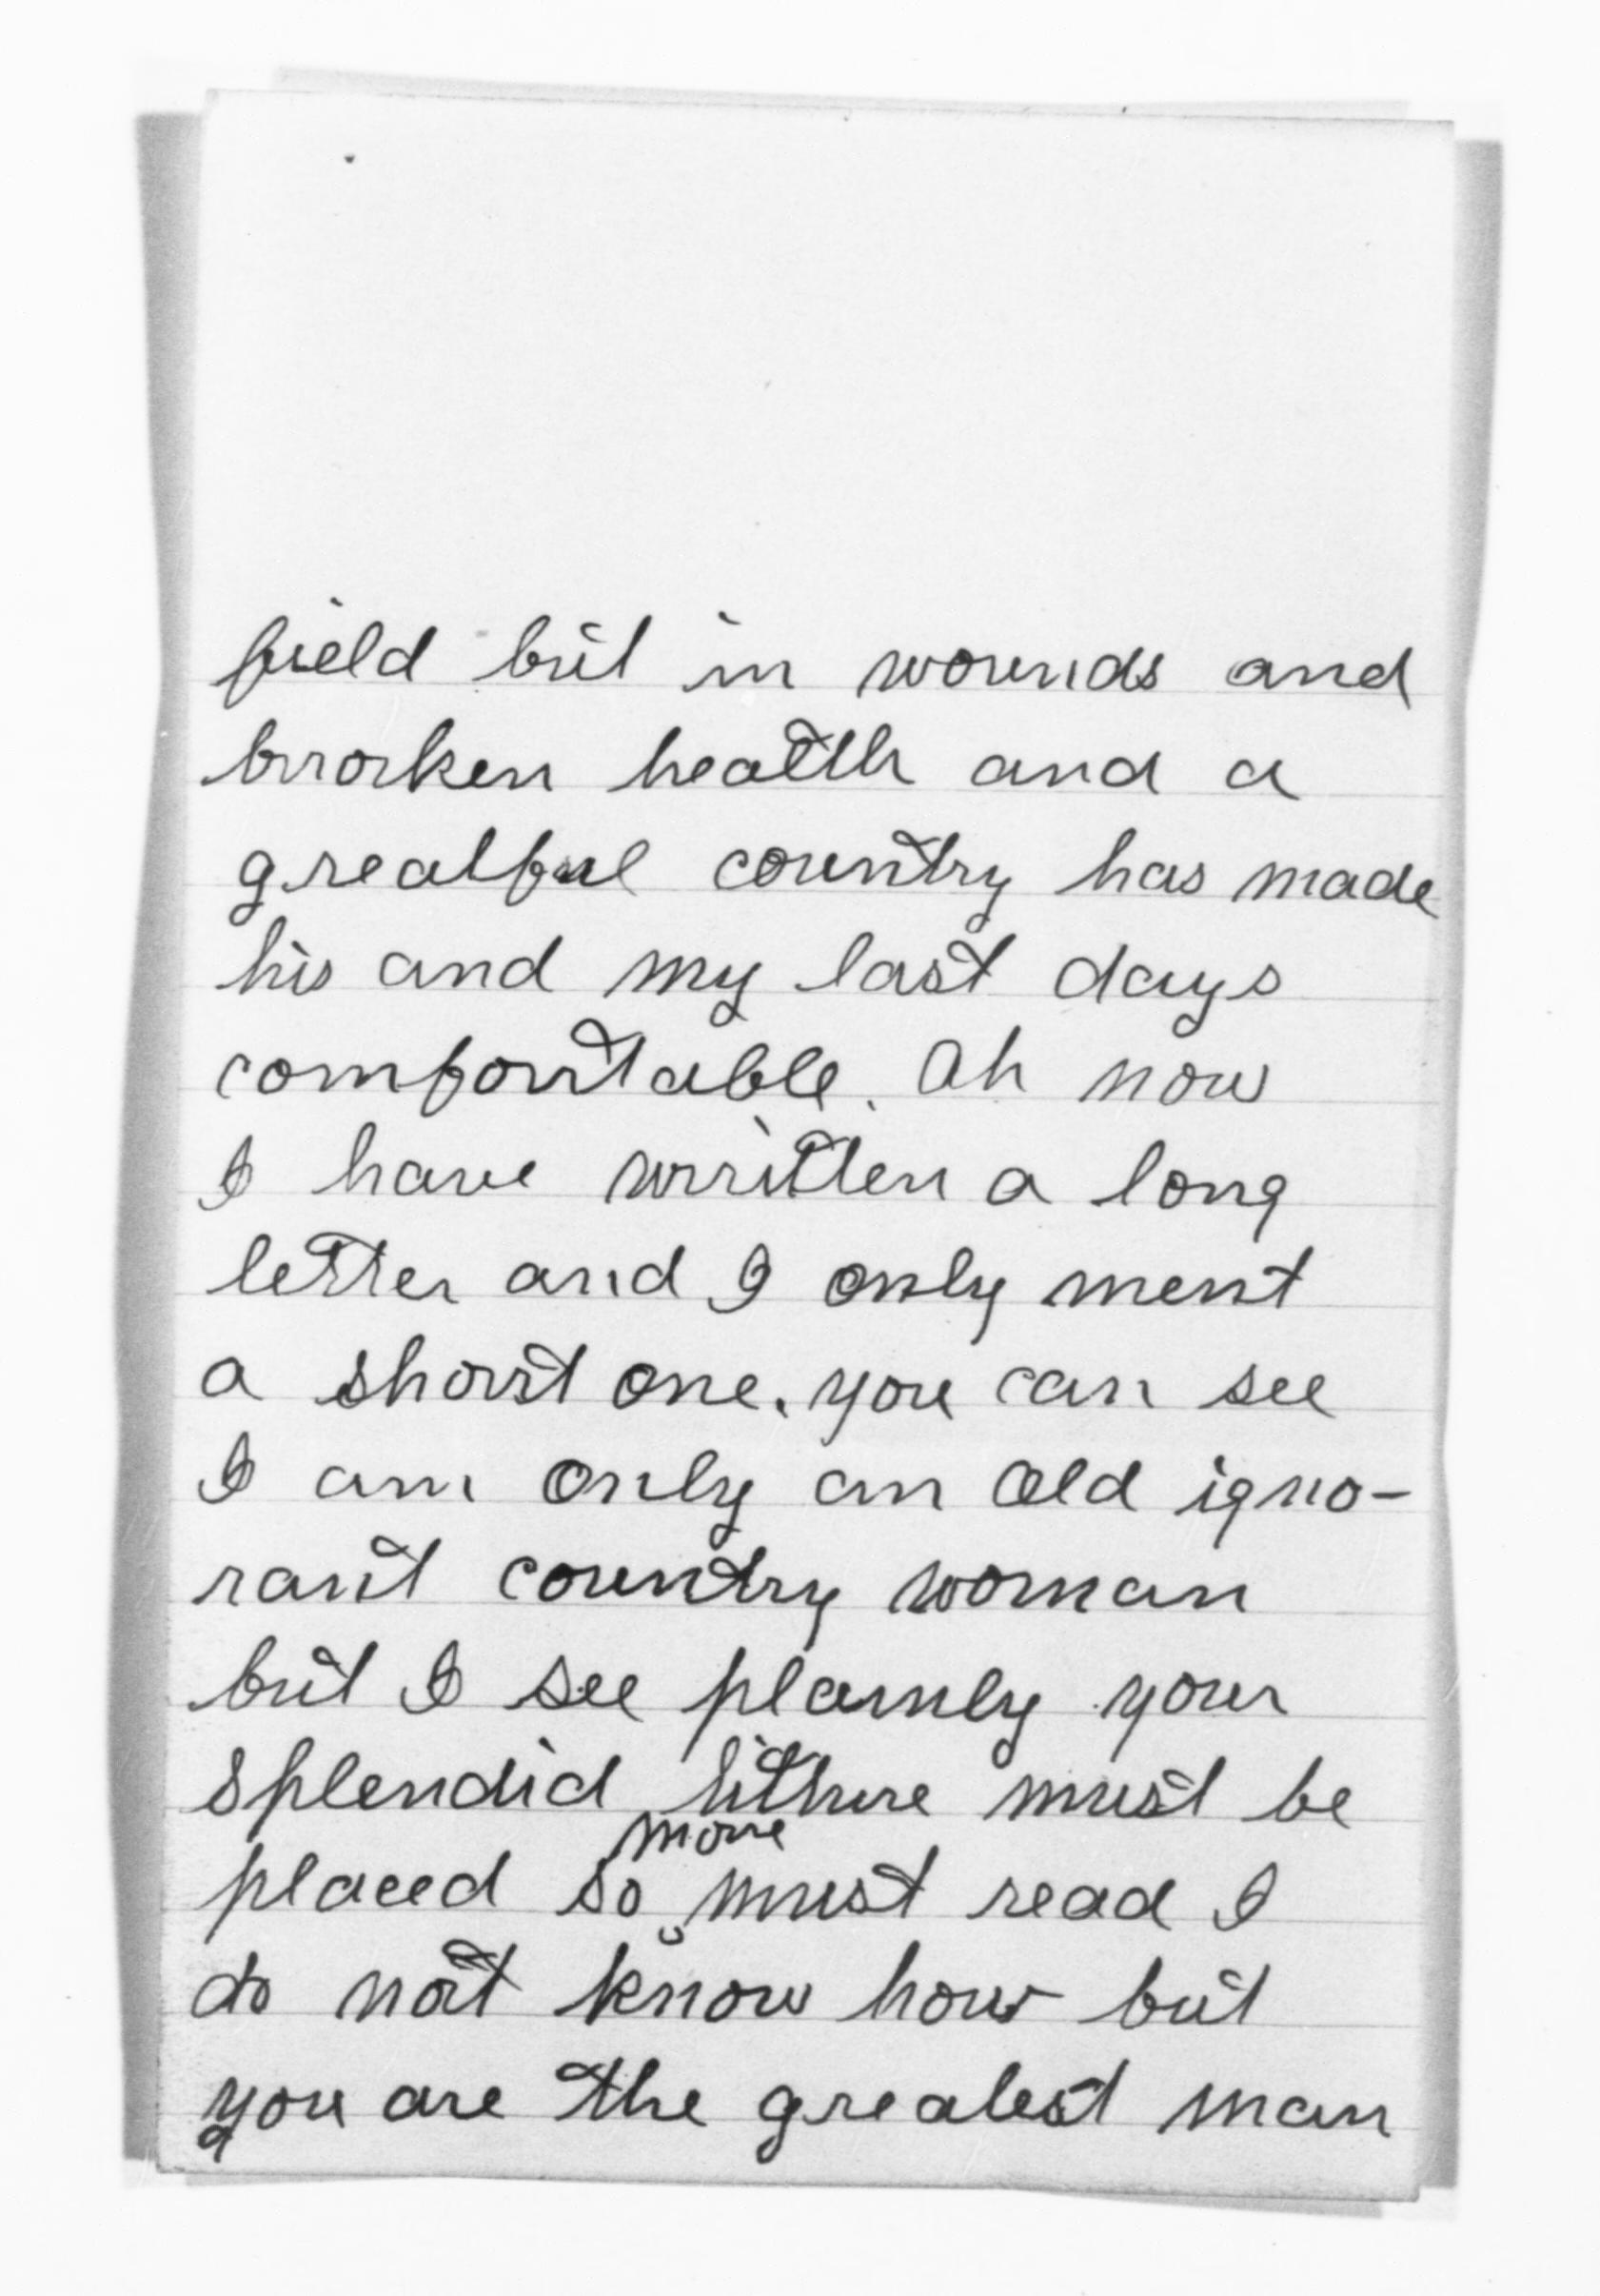 field but in wounds and
brorken heatlh and a
greatful country has made
his and my last days
comfortable. Oh now
I have written a long
letter and I only ment
a short one. you can see
I am only an Old igno-
rant country woman
but I see plamly your
splendid must be
more
placed so must read I
do not know how but
you are the greatest man